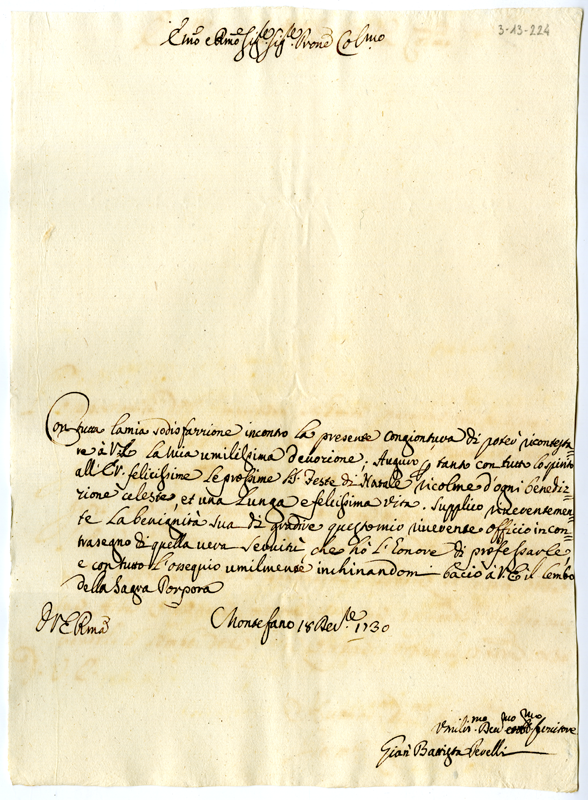 3-13-224
E.mo e R.mo Sig.re Sig.re Pron.e Col.mo
Con tutta la mia sodisfazzione incontro la presente congiontura di poter ricontesta=
re à V.E. la mia umilissima devozione; Auguro per tanto con tutto lo spirito
all'E.V. felicissime le prossime S.te Feste di Natale ricolme d'ogni benedi=
zione celeste, et una Lunga e felicissima vita. Supplico riverentemen=
te la benignità Sua di gradire questo mio riverente officio in con=
trasegno di quella vera servitù che hò L'honore di professarle
e con tutto L'ossequio umilmente inchinandomi bacio à V.E. il lembo
della Sagra Porpora
D V E R.ma Montefano 18 Dec.re 1730
Umilis.mo Dev.mo Servitore
Gian Battista